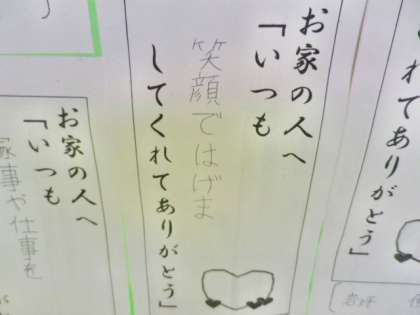 れてありがとう」
お家の人へ
「いつも
笑顔ではげま
してくれてありがとう」
お家の人へ
「いつも
家事や仕事を